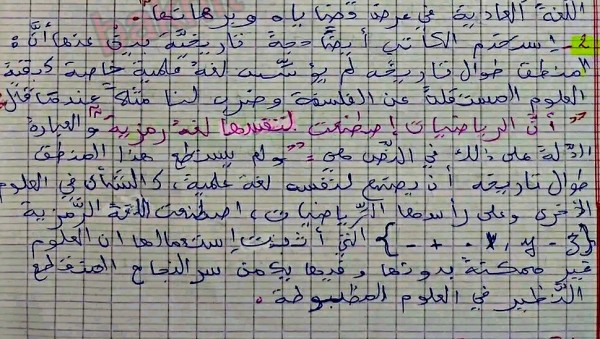 اللغة العادية في عرض قضاياه وبرهانها.
2 - استخدم الكاتب أيضا حجة تاريخية يبين عندها أنّ
المنطق طوال تاريخه لم يؤسس لغة علمية خاصة كبقية
العلوم المستقلة عن الفلسفة وضرب لنا مثلا عندما قال
" أنّ الرياضيات إصطنعت لنفسها لغة رمزية" والعبارة
الدّالة على ذالك في النّص هي = " ولم يستطع هذا المنطق
طوال تاريخه أن يصنع لنفسه لغة علمية، كالشأن في العلوم
الأخرى وعلى رأسها الرّياضيات، اصطنعت اللغة الرّمزية
{ - + . x, y - 3} التي أثبتت إستعمالها أن العلوم
غير ممكنة بدونها وفيها يكمن سر النجاح المنقطع
النّظير في العلوم المظبوطة.